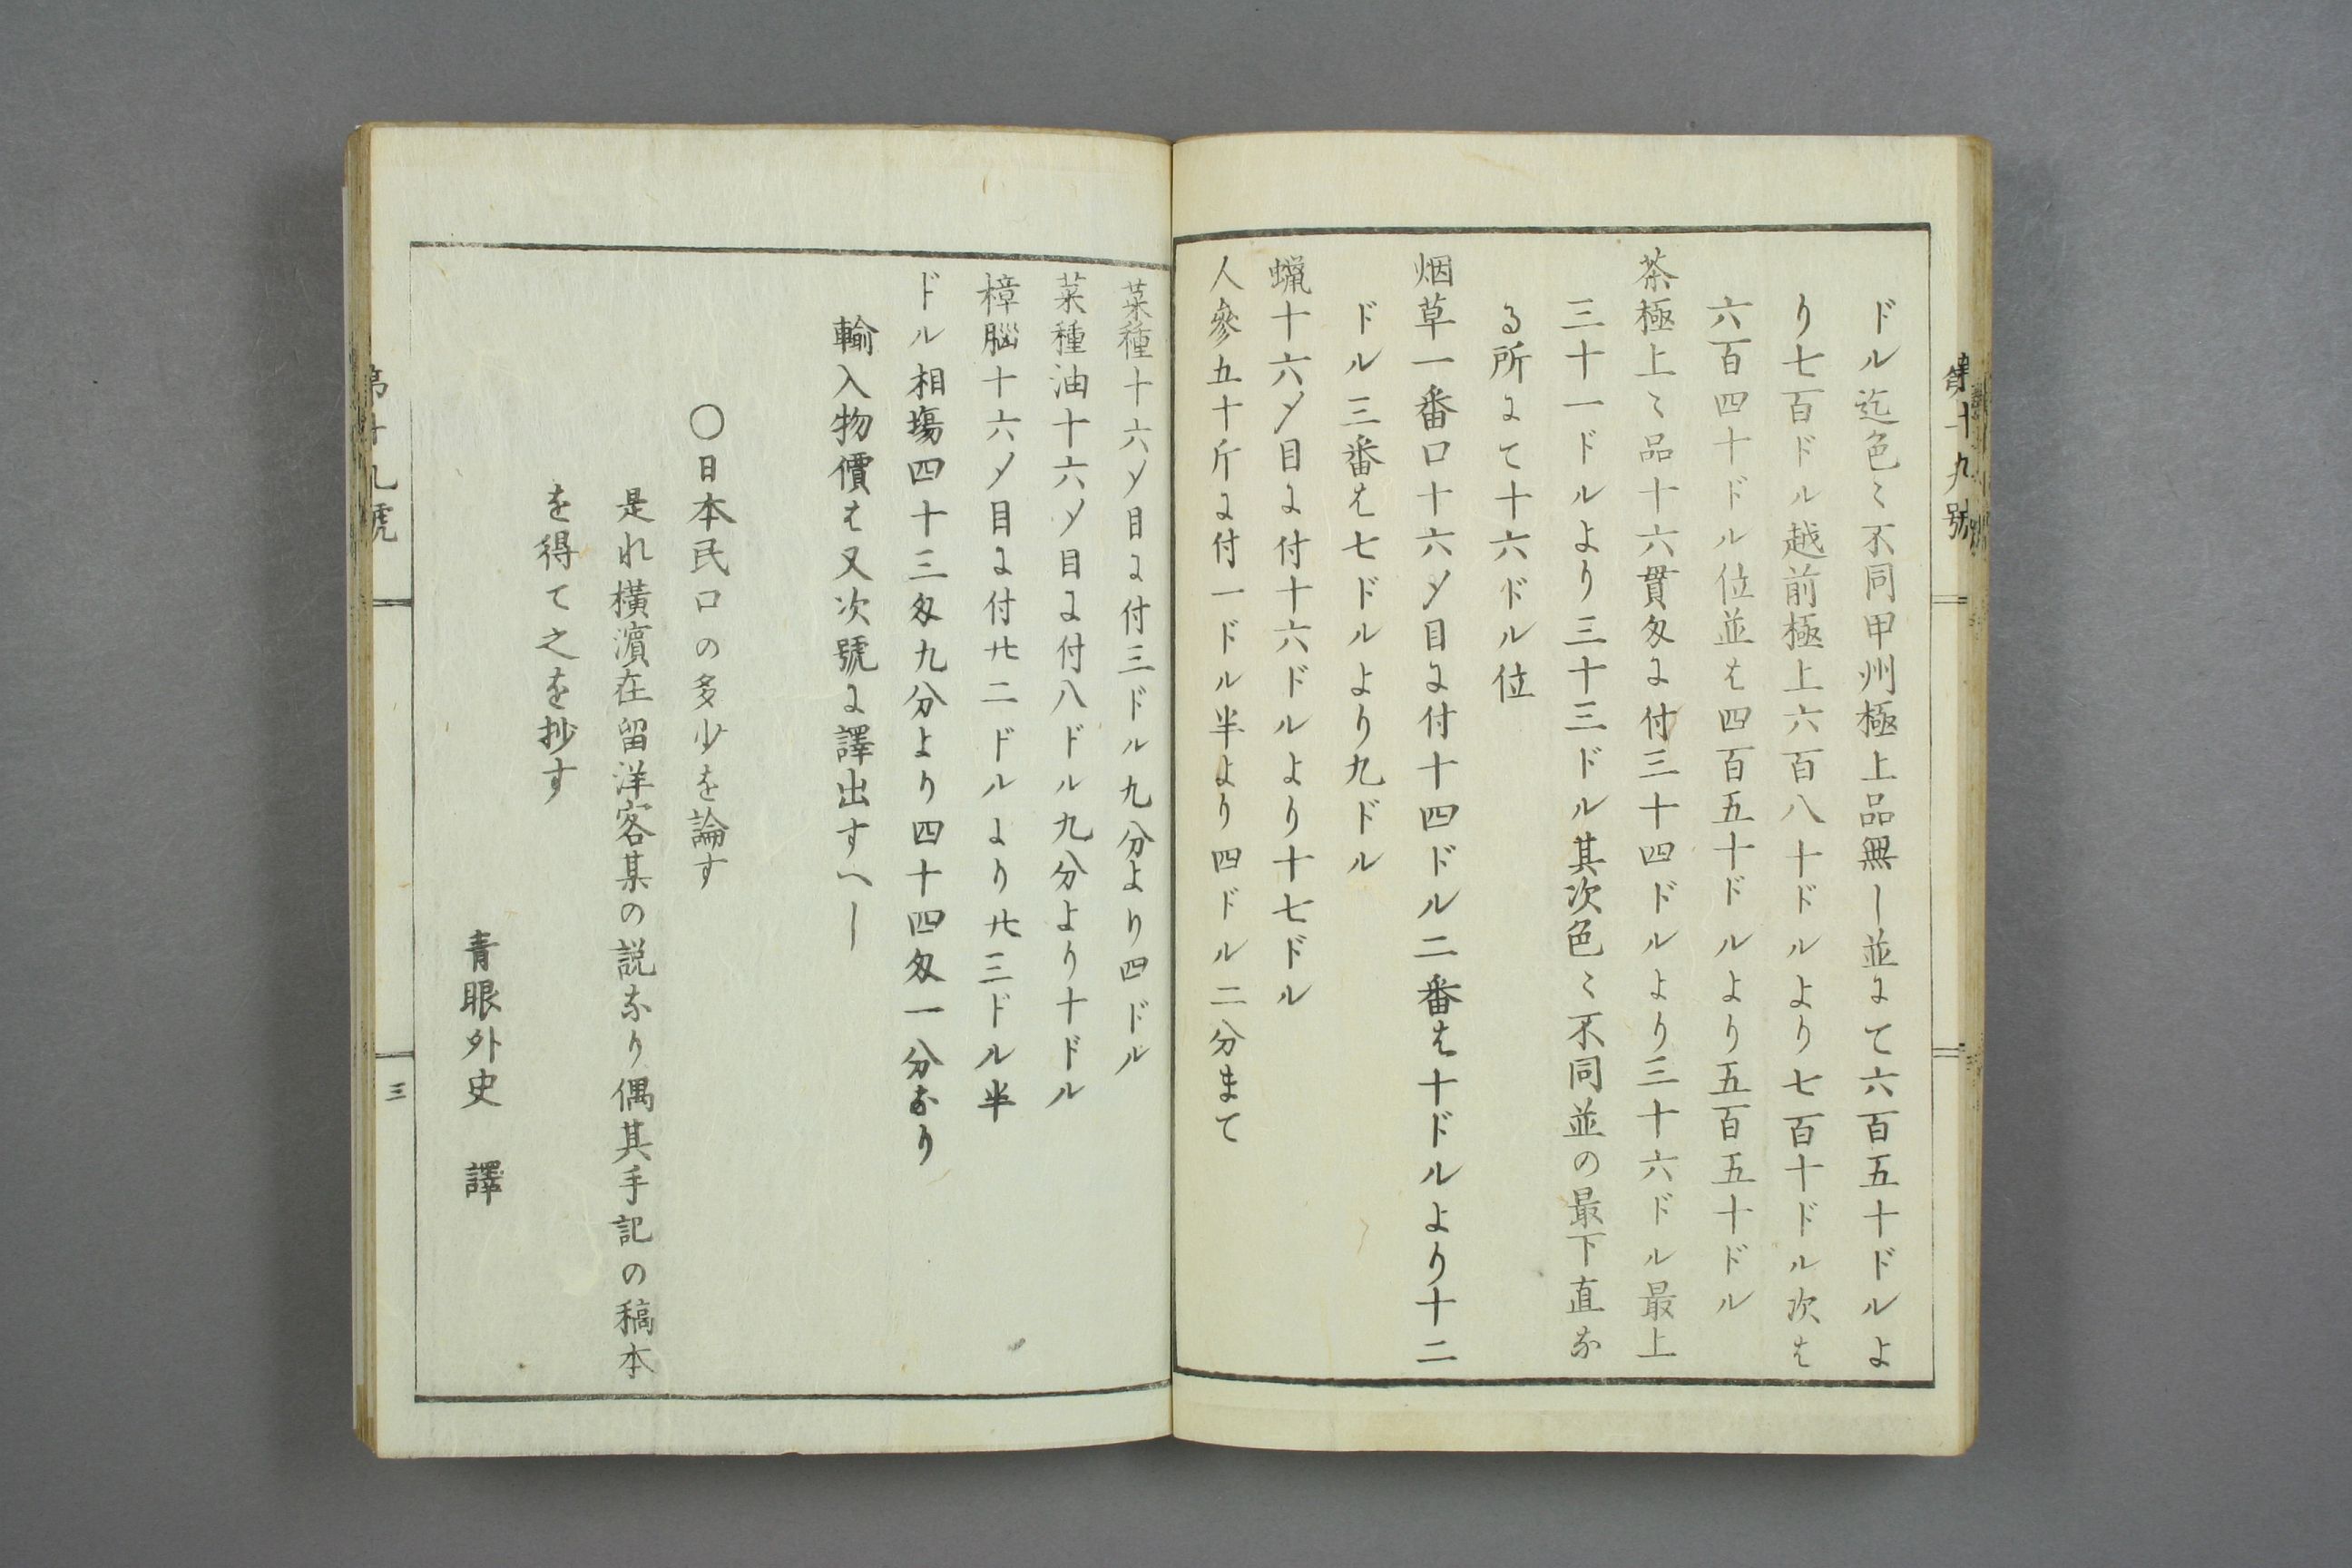 第十九號
ドル迄色〻不同甲州極上品無し並にて六百五十ドルよ
り七百ドル越前極上六百八十ドルより七百十ドル次は
六百四十ドル位並は四百五十ドルより五百五十ドル
茶極上〻品十六貫匁に付三十四ドルより三十六ドル最上
三十一ドルより三十三ドル其次色〻不同並の最下直な
る所にて十六ドル位
烟草一番口十六〆目に付十四ドル二番は十ドルより十二
ドル三番は七ドルより九ドル
蝋十六〆目に付十六ドルより十七ドル
人參五十斤に付一ドル半より四ドル二分まて
菜種十六〆目に付三ドル九分より四ドル
菜種油十六〆目に付八ドル九分より十ドル
樟腦十六〆目に付廿二ドルより廿三ドル半
ドル相塲四十三匁九分より四十四匁一分なり
輸入物價は又次號に譯出すへし
〇日本民口の多少を論す
是れ横濵在留洋客某の説なり偶其手記の稿本
を得て之を抄す
青眼外史　譯
第十九號
三